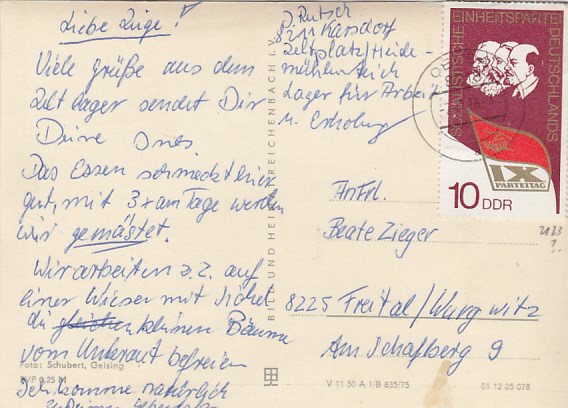 Liebe Ziege!
Viele grüße aus dem
Zeltlager sendet Dir
Deine Ines
Das Essen schmeckt hier
gut, mit 3x am Tage werden
wir gemästet.
Wir arbeiten z.Z. auf
einer Wiese mit
die kleinen Bäume
vom Unkraut befreien
Ich komme natürlich
8211 Karsdorf
Zeltplatz/Heide-
mühlenteich
Lager für Arbeit
u. Erholung
SOZIALISTISCHE EINHEITSPARTEI DEUTSCHLANDS
IX
PARTEITAG
10 DDR
An Frl.
Beate Zieger
8225 Freital/Wurgwitz
Am Schafberg 9
BILD UND HEIMAT REICHENBACH I.V.
Foto: Schubert, Geising
EVP 0,25 M
V 11 50 A 1/B 835/75
01 12 05 078